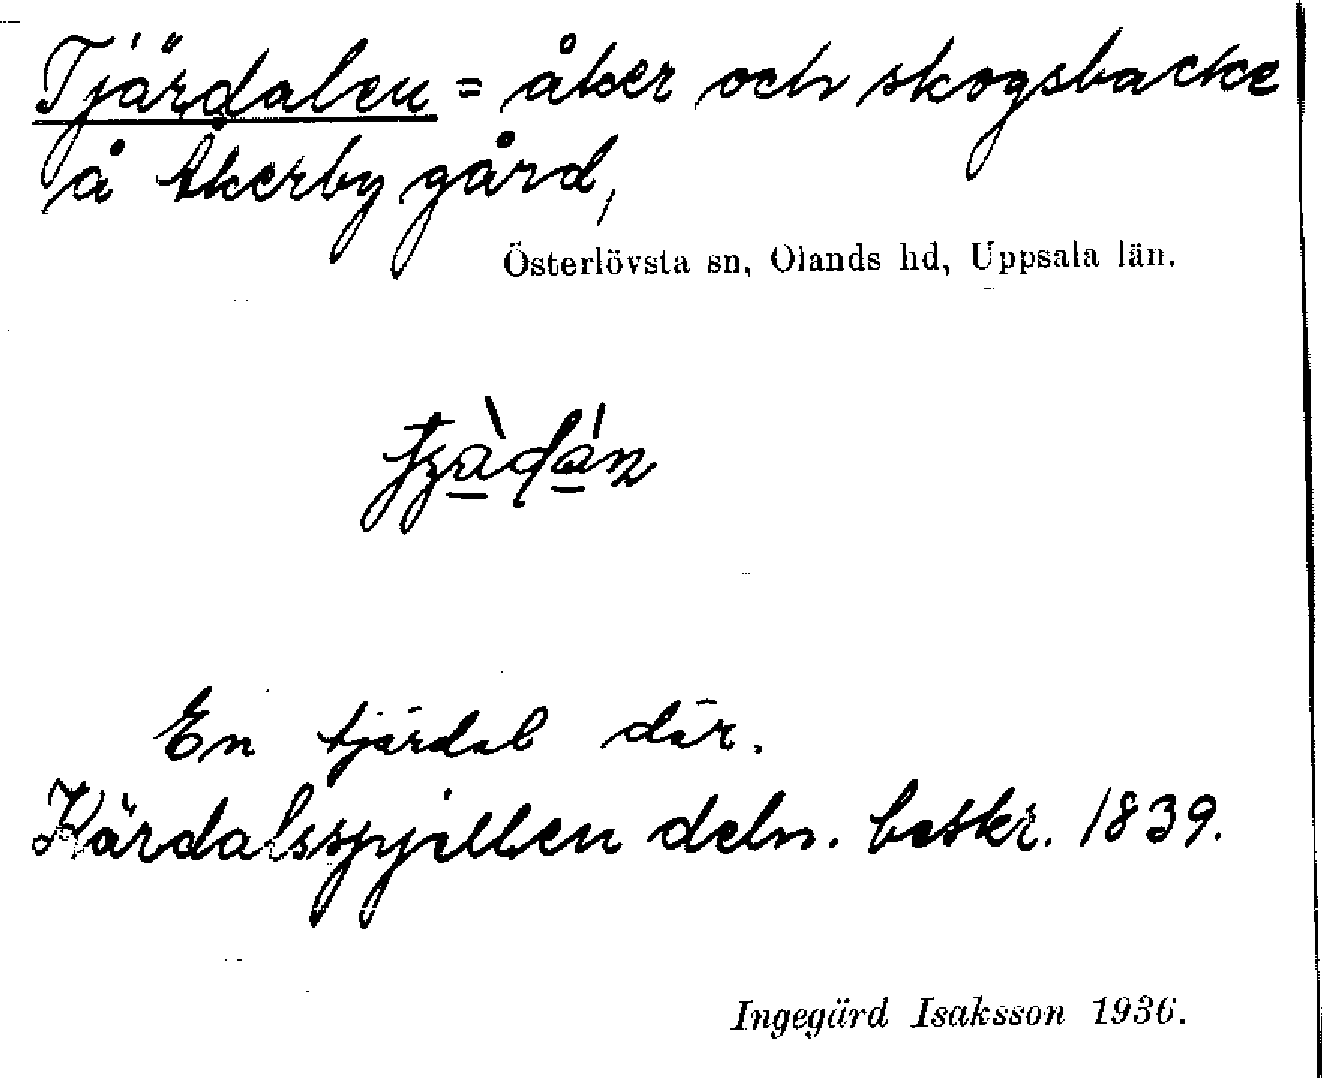 Tjärdalen = åker och skogsbacke
å Åkerby gård,
Österlövsta sn, Olands hd, Uppsala län.
En tjärdal där.
deln. beskr. 1839.
Ingegärd Isaksson 1936.